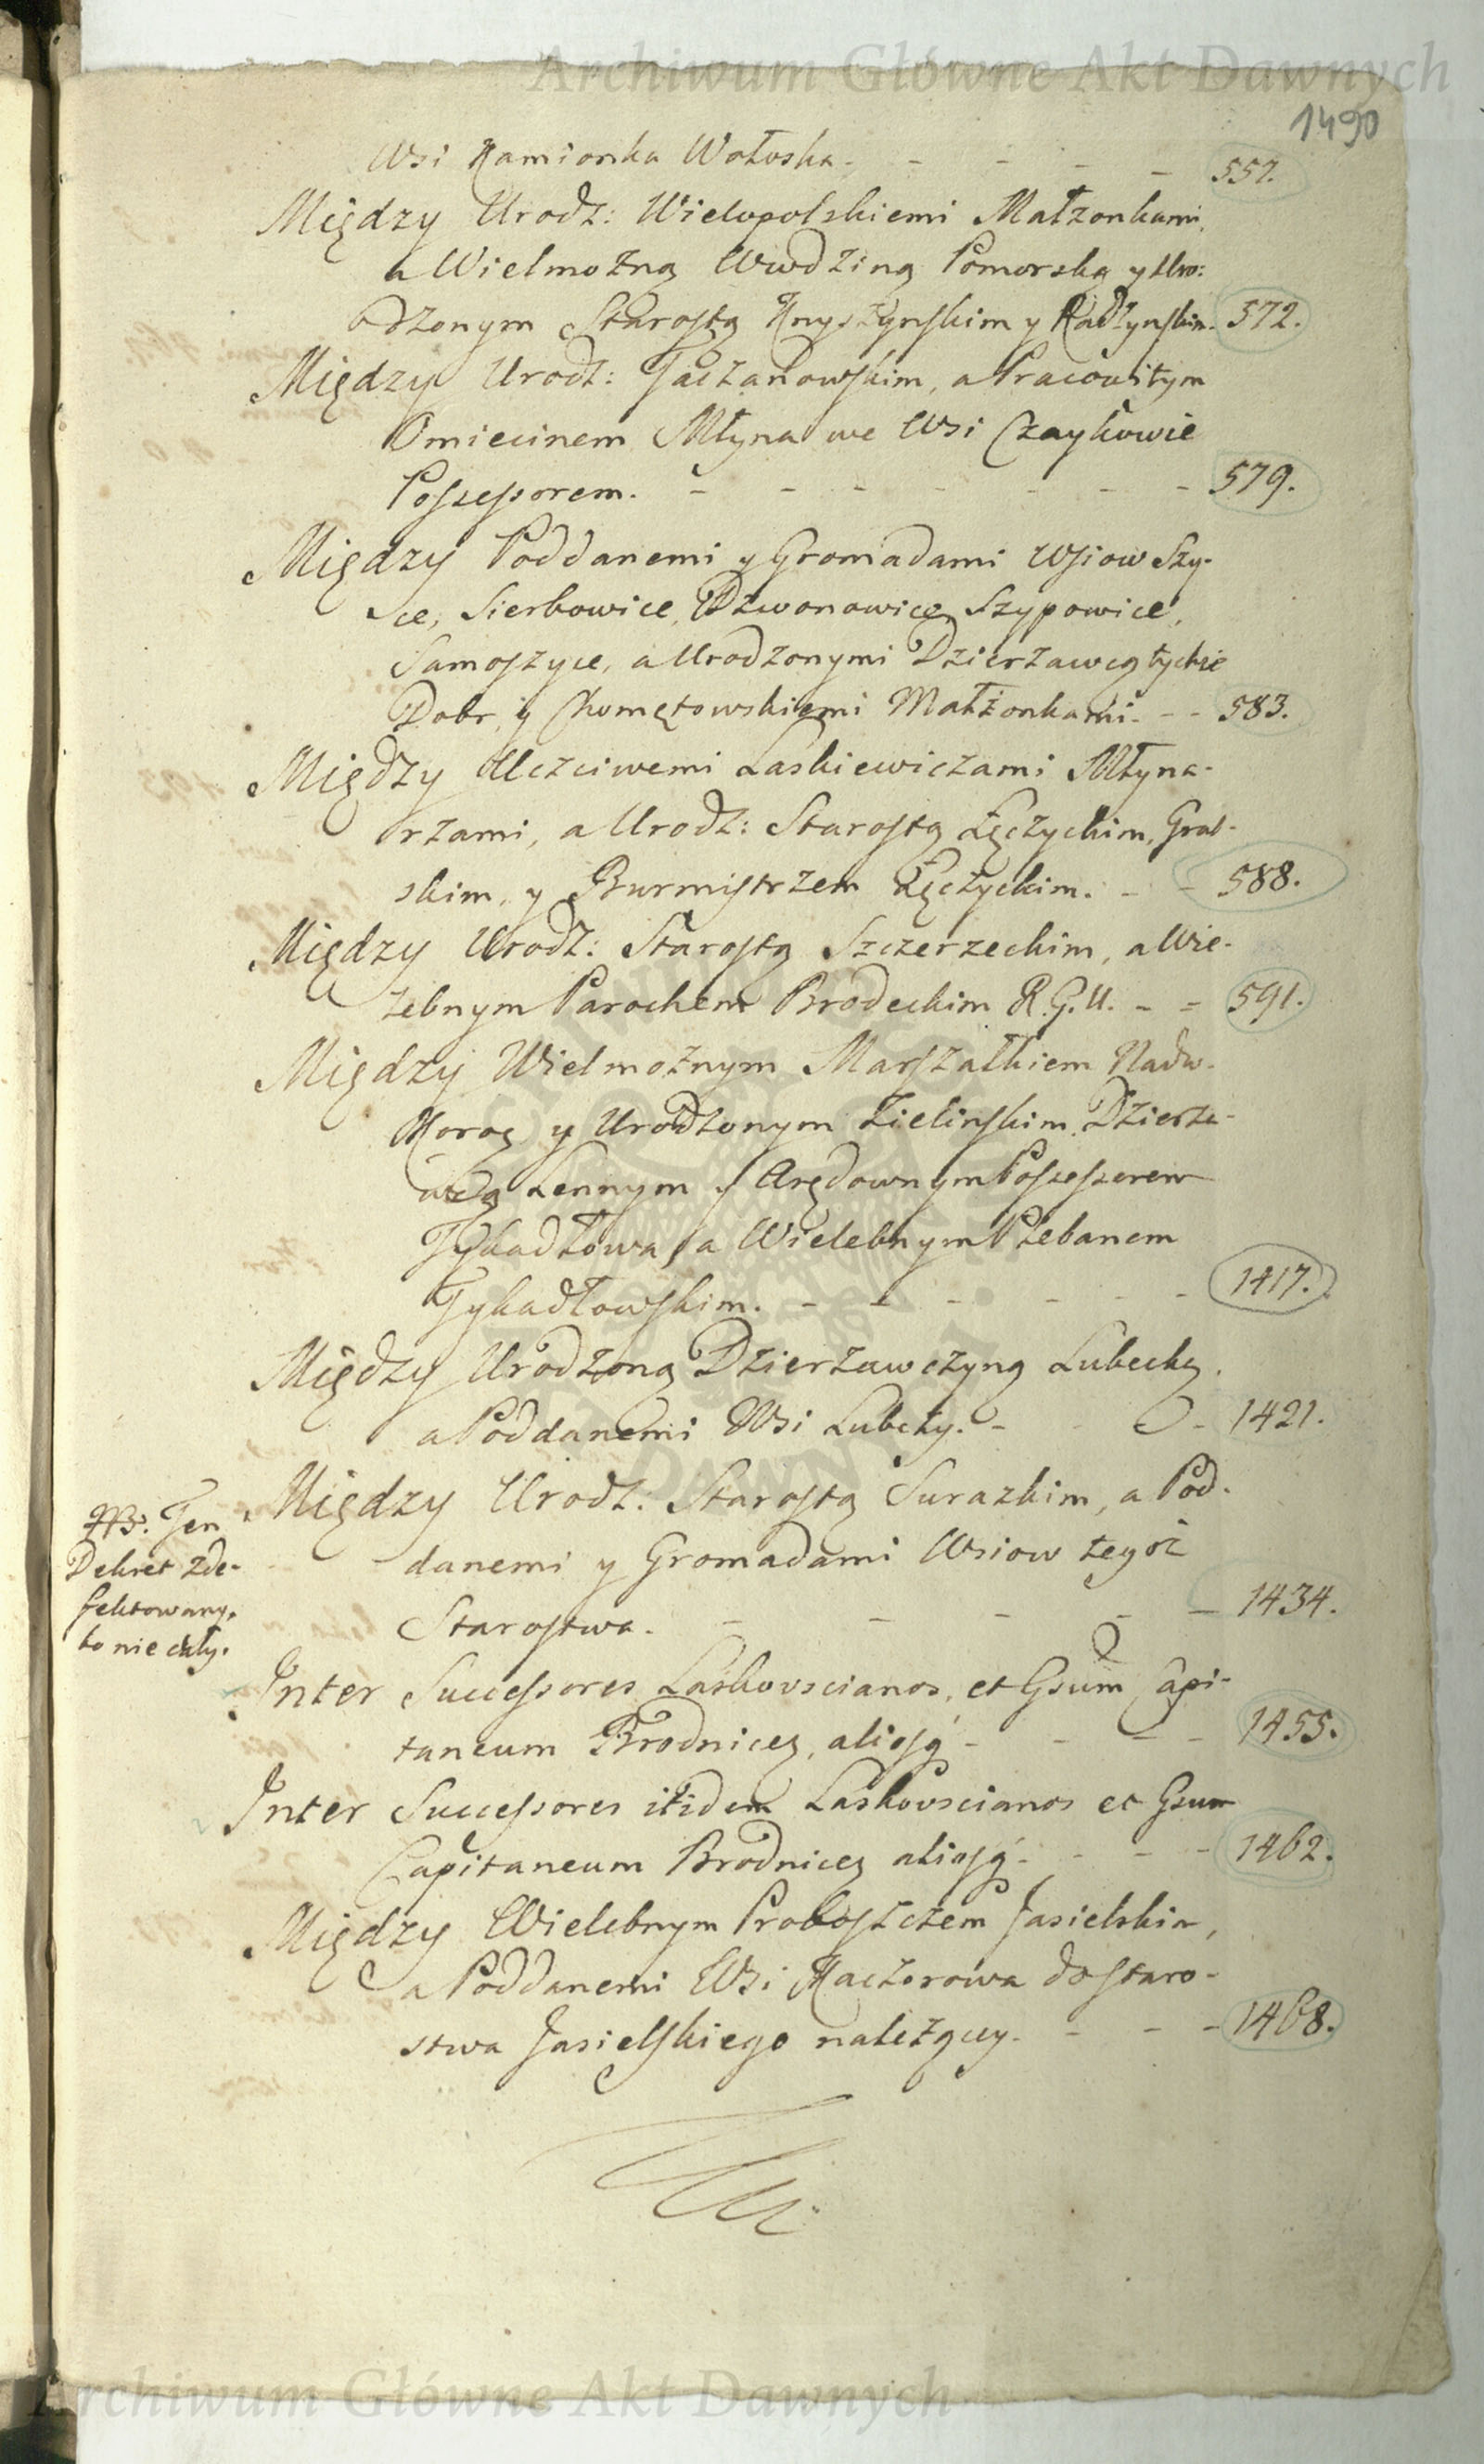 Archiwum Główne Akt Dawnych
1490
Wsi Kamionka Wołoska. - - - - - 557.
Między Urodz: Wielopolskiemi Małzonkami,
a Wielmożną Wwdziną Pomorską y Uro:
dzonym Starostą Knyszynskim y Radzynskim. 572.
Między Urodz: Taczanowskim, a Pracowitym
Omiecinem Młyna we Wsi Czaykowie
Possessorem. - - - - - - - 579.
Między Poddanemi y Gromadami Wsiow Szy-
ce, Sierbowice, Dzwonowice, Szypowice,
Samoszyce, a Urodzonymi Dzierzawcą tychże
Dobr, y Chomętowskiemi Małżonkami. - - 583.
Między Uczciwemi Laskiewiczami Młyna-
rzami, a Urodz: Starostą Łęczyckim, Grab-
skim, y Burmistrzem Łęczyckim. - - 588.
Między Urodz: Starostą Szczerzeckim, a Wie-
lebnym Parochem Brodeckim R.G.U. - - 591.
Między Wielmożnym Marszałkiem Nadw.
Koroą y Urodzonym Zielinskim Dzierża-
wcą Lennym y Arędownym Possessorem
Tykadłowa, a Wielebnym Plebanem
Tykadłowskim. - - - - - - 1417.
Między Urodzoną Dzierzawczyną Lubecką,
a Poddanemi Wsi Lubczy. - - 1421.
Między Urodz: Starostą Surazkim, a Pod-
danemi y Gromadami Wsiow tegoż
Starostwa. - - - - - 1434.
NB: Ten
Dekret zde-
fektowany,
bo nie cały.
Inter Successores Laskovscianos, et Gsum Capi-
taneum Brodnicen, aliosq - - - - 1455.
Inter Successores itidem Laskovscianos et Gsum
Capitaneum Brodnicen aliosq - - - - 1462.
Między Wielebnym Proboszczem Jasielskim,
a Poddanemi Wsi Kaczorowa do Staro-
stwa Jasielskiego należący. - - - 1468.
Archiwum Główne Akt Dawnych